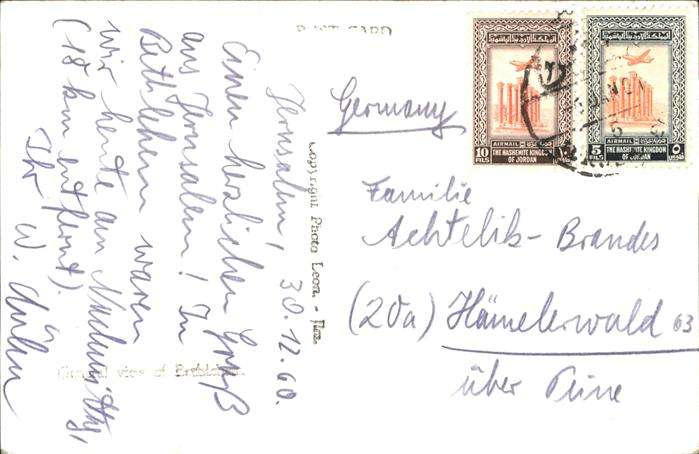 Jerusalem, 30.12.60.
Einen herzlichen Gruß
aus Jerusalem! In
Bethlehem waren
wir heute am Nachmittag,
(18 km entfernt).
Ihr W.
Copyright Photo Leon. -
General view of Bethlehem.
Germany
Familie
Achtelik-Brandes
(20a) Hämelerwald 63
über Peine
المملكة الأردنية الهاشمية
AIRMAIL
10 FILS
THE HASHEMITE KINGDOM
OF JORDAN
المملكة الأردنية الهاشمية
AIRMAIL
5 FILS
THE HASHEMITE KINGDOM
OF JORDAN